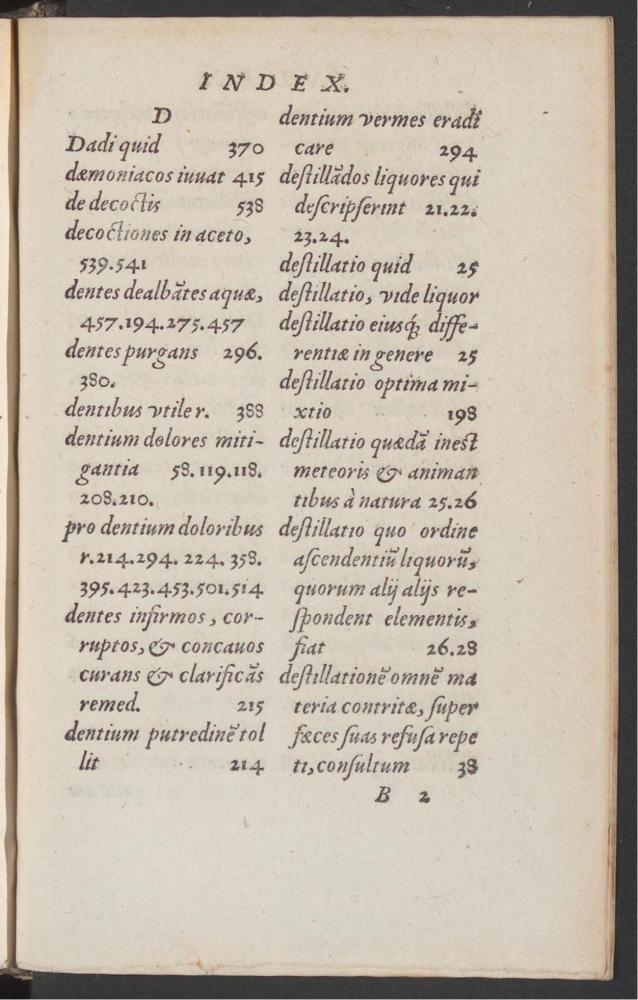 INDEX.
D
Dadi quid 370
dæmoniacos iuuat 415
de decoctis 538
decoctiones in aceto,
539.541
dentes dealbātes aquæ,
457.194.275.457
dentes purgans 296.
380.
dentibus vtile r. 388
dentium dolores miti-
gantia 58.119.118.
208.210.
pro dentium doloribus
r.214.294. 224. 358.
395.423.453.501.514
dentes infirmos, cor-
ruptos, & concauos
curans & clarificās
remed. 215
dentium putredinē tol
lit 214
dentium vermes eradi
care 294
deſtillādos liquores qui
deſcripſerint 21.22.
23.24.
deſtillatio quid 25
deſtillatio, vide liquor
deſtillatio eiusq́; diffe-
rentiæ in genere 25
deſtillatio optima mi-
xtio 198
deſtillatio quædā ineſt
meteoris & animan
tibus à natura 25.26
deſtillatio quo ordine
aſcendentiū liquorū,
quorum alij alijs re-
ſpondent elementis,
fiat 26.28
deſtillationē omnē ma
teria contritæ, ſuper
fæces ſuas refuſa repe
ti, conſultum 38
B 2